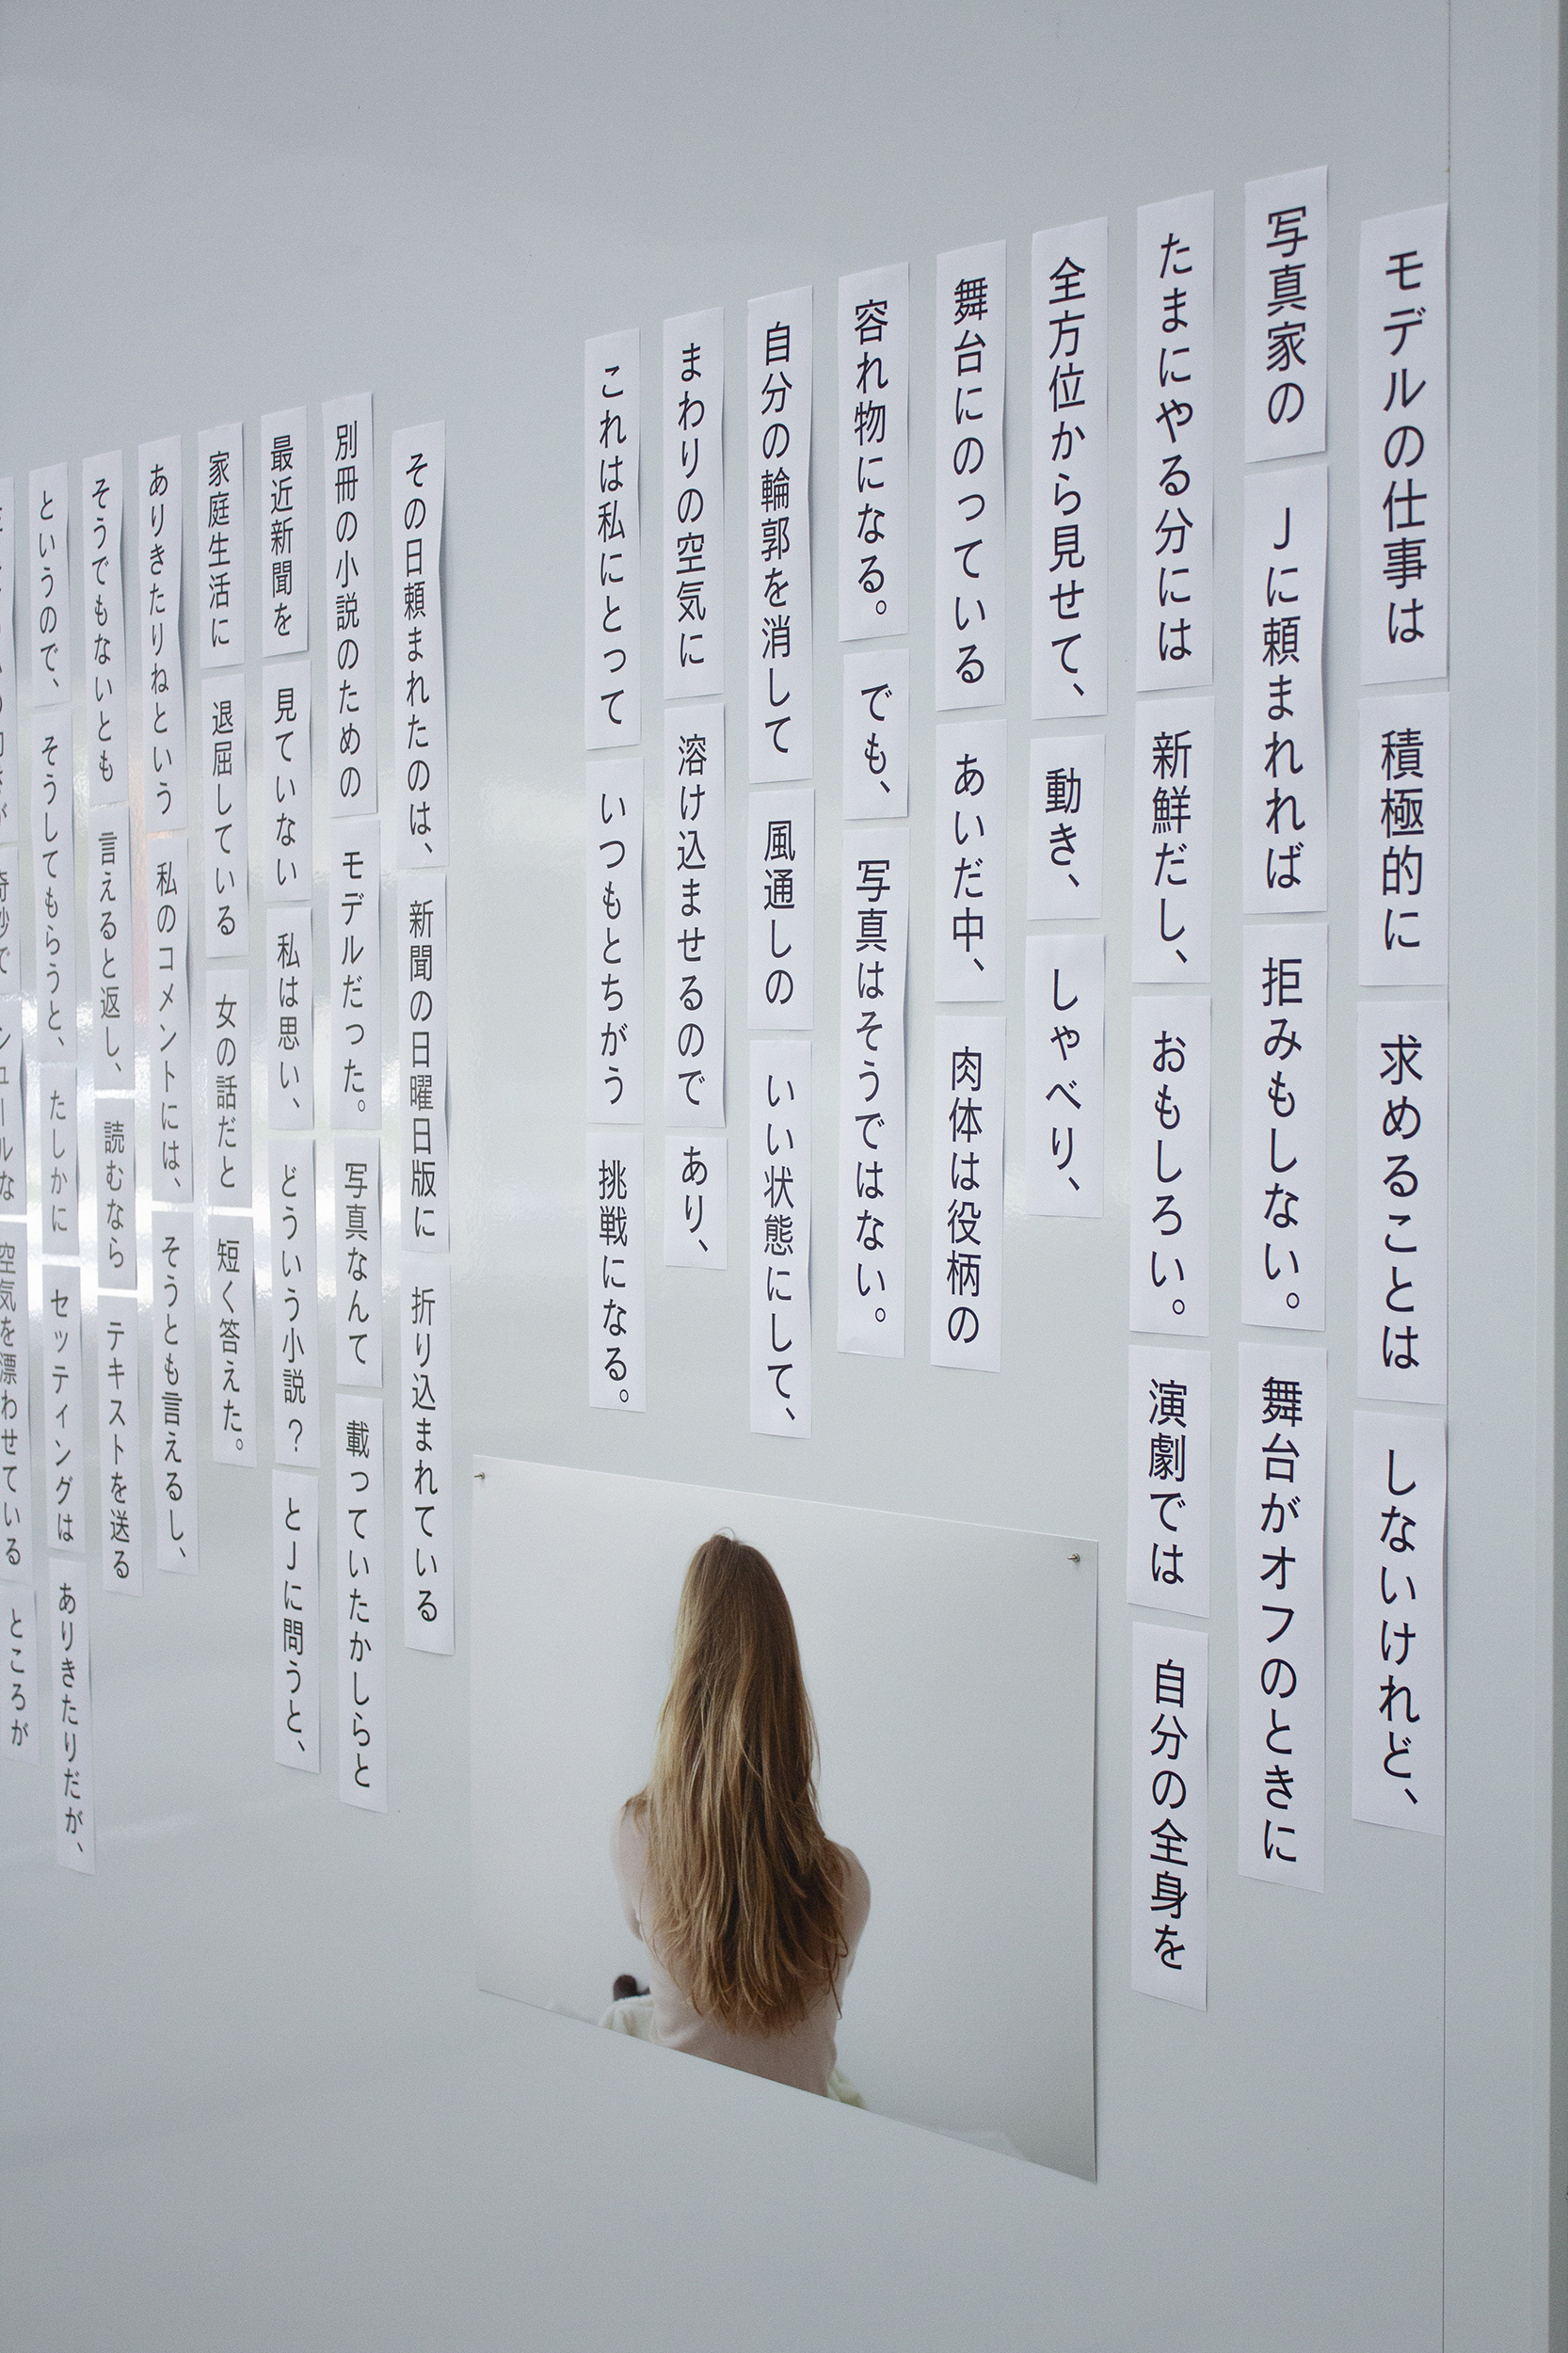 モデルの仕事は 積極的に 求めることは しないけれど、
写真家の Jに頼まれれば 拒みもしない。 舞台がオフのときに
たまにやる分には 新鮮だし、 おもしろい。 演劇では 自分の全身を
全方位から見せて、 動き、 しゃべり、
舞台にのっている あいだ中、 肉体は役柄の
容れ物になる。 でも、 写真はそうではない。
自分の輪郭を消して 風通しの いい状態にして、
まわりの空気に 溶け込ませるので あり、
これは私にとって いつもとちがう 挑戦になる。
その日頼まれたのは、 新聞の日曜日版に 折り込まれている
別冊の小説のための モデルだった。 写真なんて 載っていたかしらと
最近新聞を 見ていない 私は思い、 どういう小説? とJに問うと、
家庭生活に 退屈している 女の話だと 短く答えた。
ありきたりねという 私のコメントには、 そうとも言えるし、
そうでもないとも 言えると返し、 読むなら テキストを送る
というので、 そうしてもらうと、 たしかに セッティングは ありきたりだが、
空気を漂わせている ところが